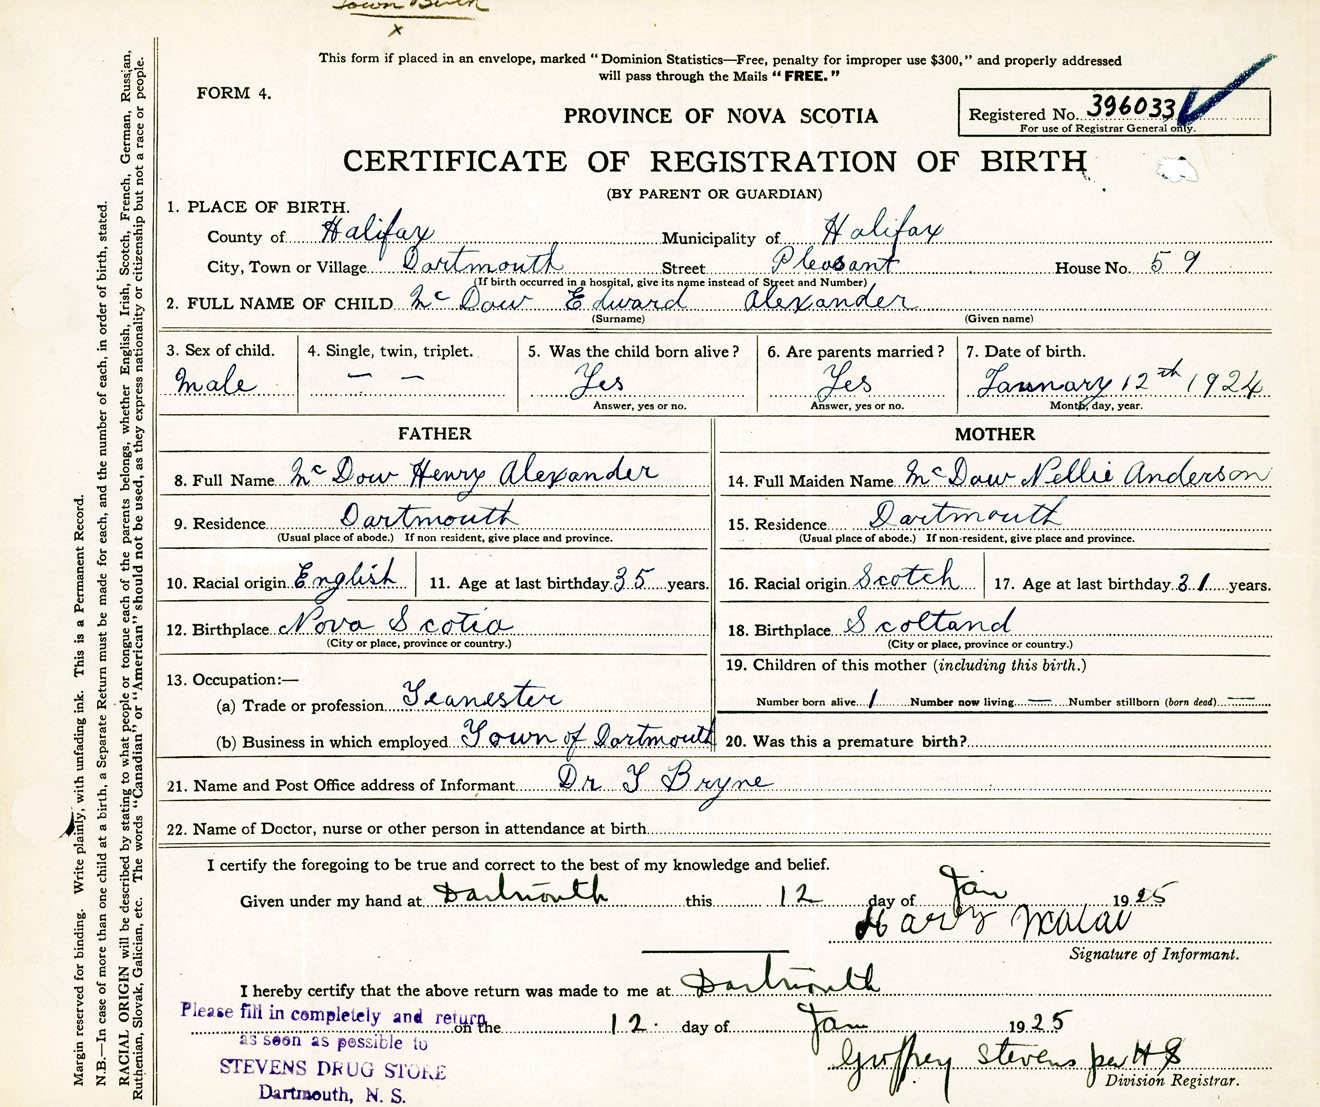 Town Birth
x
This form if placed in an envelope, marked "Dominion Statistics—Free, penalty for improper use $300," and properly addressed
will pass through the Mails "FREE."
FORM 4.
PROVINCE OF NOVA SCOTIA
Registered No. 396033
For use of Registrar General only.
CERTIFICATE OF REGISTRATION OF BIRTH
(BY PARENT OR GUARDIAN)
1. PLACE OF BIRTH.
County of Halifax Municipality of Halifax
City, Town or Village Dartmouth Street Pleasant House No. 59
(If birth occurred in a hospital, give its name instead of Street and Number)
2. FULL NAME OF CHILD McDow Edward Alexander
(Surname) (Given name)
3. Sex of child. 4. Single, twin, triplet. 5. Was the child born alive? 6. Are parents married? 7. Date of birth.
Male — — Yes Yes January 12th 1924
Answer, yes or no. Answer, yes or no. Month, day, year.
FATHER
8. Full Name McDow Henry Alexander
9. Residence Dartmouth
(Usual place of abode.) If non resident, give place and province.
10. Racial origin English 11. Age at last birthday 35 years.
12. Birthplace Nova Scotia
(City or place, province or country.)
13. Occupation:—
(a) Trade or profession Teamester
(b) Business in which employed Town of Dartmouth
MOTHER
14. Full Maiden Name McDow Nellie Anderson
15. Residence Dartmouth
(Usual place of abode.) If non-resident, give place and province.
16. Racial origin Scotch 17. Age at last birthday 31 years.
18. Birthplace Scoltand
(City or place, province or country.)
19. Children of this mother (including this birth.)
Number born alive 1 Number now living — Number stillborn (born dead) —
20. Was this a premature birth?
21. Name and Post Office address of Informant Dr T Bryne
22. Name of Doctor, nurse or other person in attendance at birth
I certify the foregoing to be true and correct to the best of my knowledge and belief.
Given under my hand at Dartmouth this 12 day of Jan 1925
Harry
Signature of Informant.
I hereby certify that the above return was made to me at Dartmouth
on the 12. day of Jan 1925
Goffrey Stevens per H S
Division Registrar.
Please fill in completely and return
as soon as possible to
STEVENS DRUG STORE
Dartmouth, N. S.
Margin reserved for binding. Write plainly, with unfading ink. This is a Permanent Record.
N.B.—In case of more than one child at a birth, a Separate Return must be made for each, and the number of each, in order of birth, stated.
RACIAL ORIGIN will be described by stating to what people or tongue each of the parents belongs, whether English, Irish, Scotch, French, German, Russian,
Ruthenian, Slovak, Galician, etc. The words "Canadian" or "American" should not be used, as they express nationality or citizenship but not a race or people.